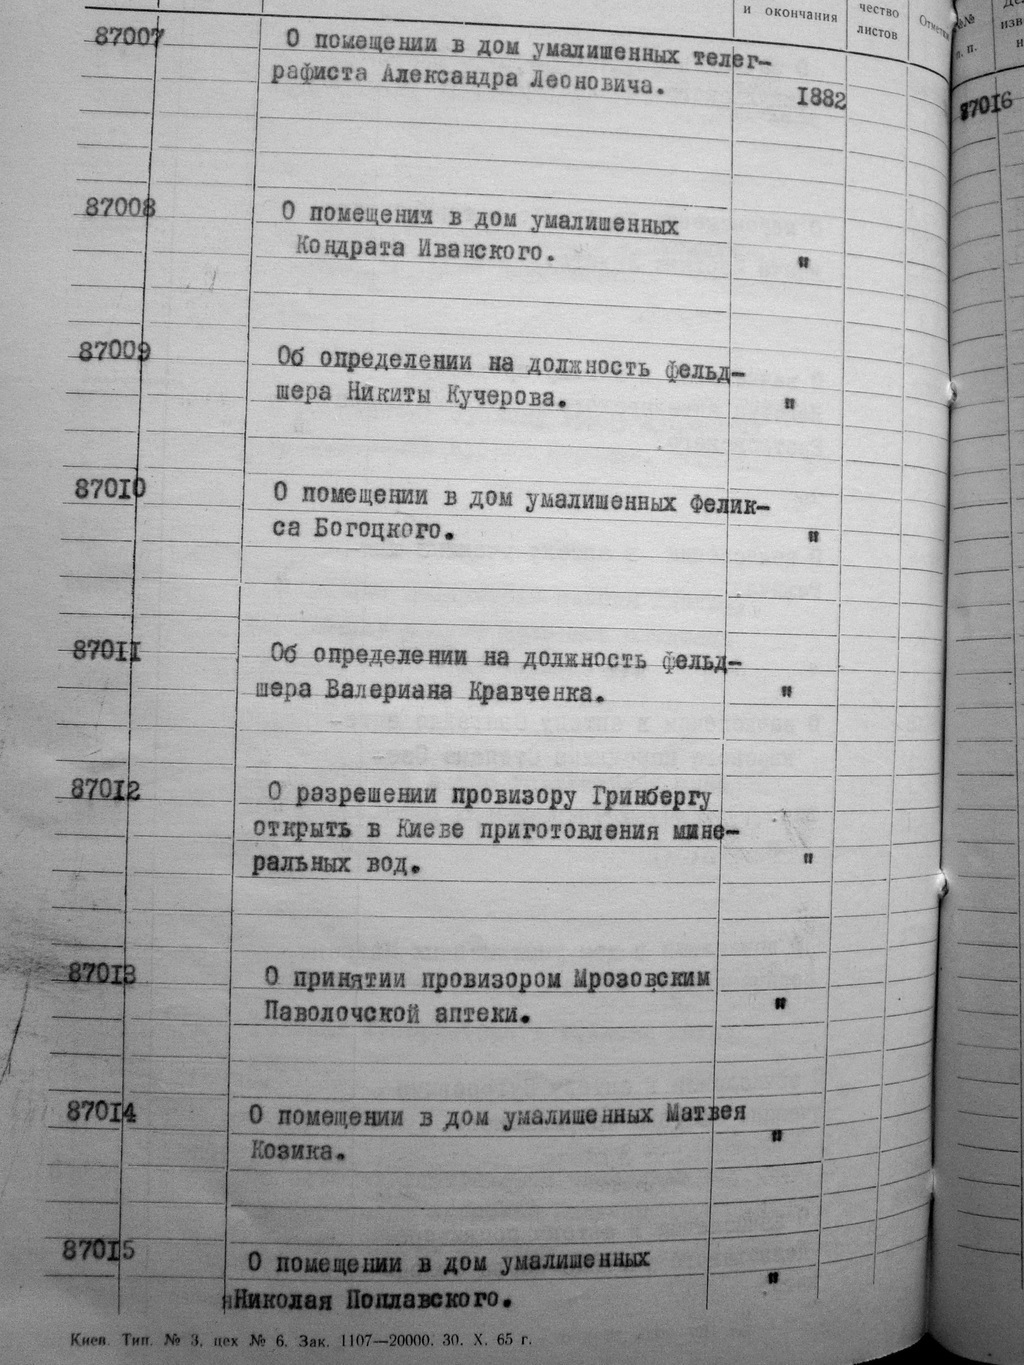 и окончания
чество
листов
Отметки
№№
п. п.
87007 О помещении в дом умалишенных телег-
рафиста Александра Леоновича.
1882
87016
87008 О помещения в дом умалишенных
Кондрата Иванского. "
87009 Об определении на должность фельд-
шера Никиты Кучерова. "
87010 О помещении в дом умалишенных Фелик-
са Богоцкого. "
87011 Об определении на должность фельд-
шера Валериана Кравченка. "
87012 О разрешении провизору Гринбергу
открыть в Киеве приготовления мине-
ральных вод. "
87013 О принятии провизором Мрозовским
Паволочской аптеки. "
87014 О помещении в дом умалишенных Матвея
Козика. "
87015 О помещении в дом умалишенных
Николая Поплавского. "
Киев. Тип. № 3, цех № 6. Зак. 1107—20000. 30. X. 65 г.